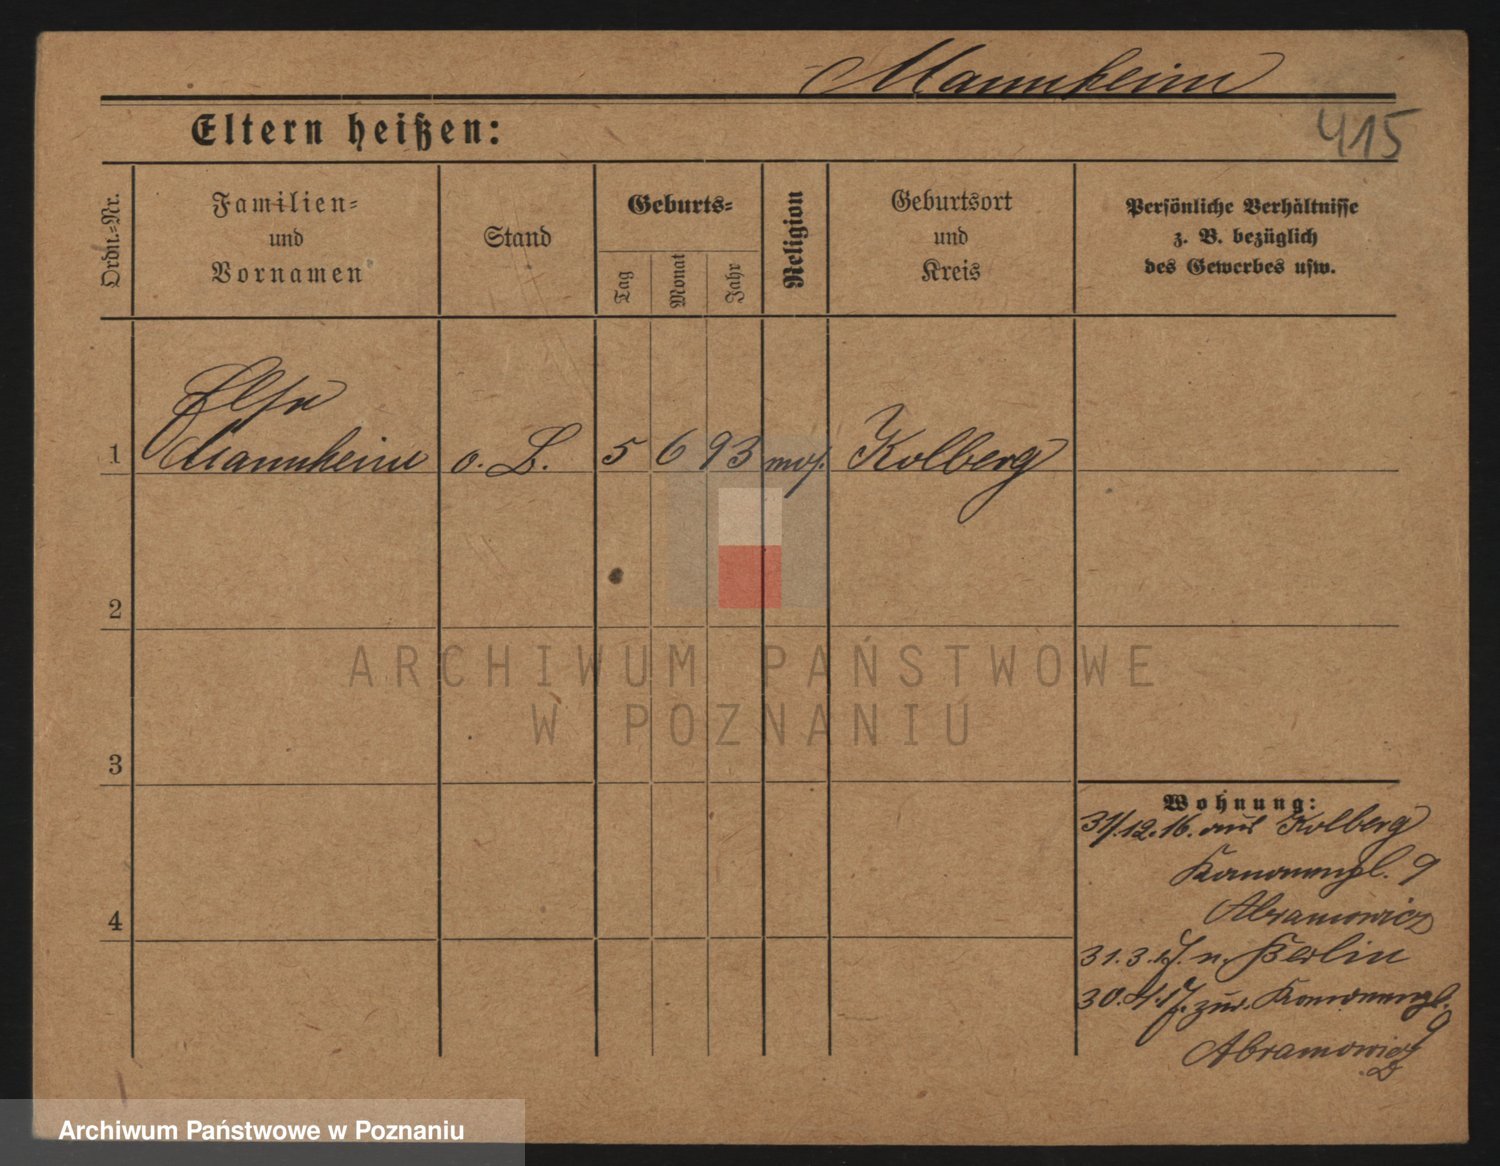 Mannheim
415
Eltern heißen:
Ordn.-Nr.
Familien-
und
Vornamen
Stand
Geburts-
Tag
Monat
Jahr
Religion
Geburtsort
und
Kreis
Persönliche Verhältnisse
z. B. bezüglich
des Gewerbes usw.
1
Mannheim
o. L. 5 6 93 mos. Kolberg
2
3
4
Wohnung:
31/.12.16. aus Kolberg
Kanonenpl. 9
Abramowicz
31.3.17. n. Berlin
30.4.17. zur. Kanonenpl.
9
Abramowicz
ARCHIWUM PAŃSTWOWE
W POZNANIU
Archiwum Państwowe w Poznaniu